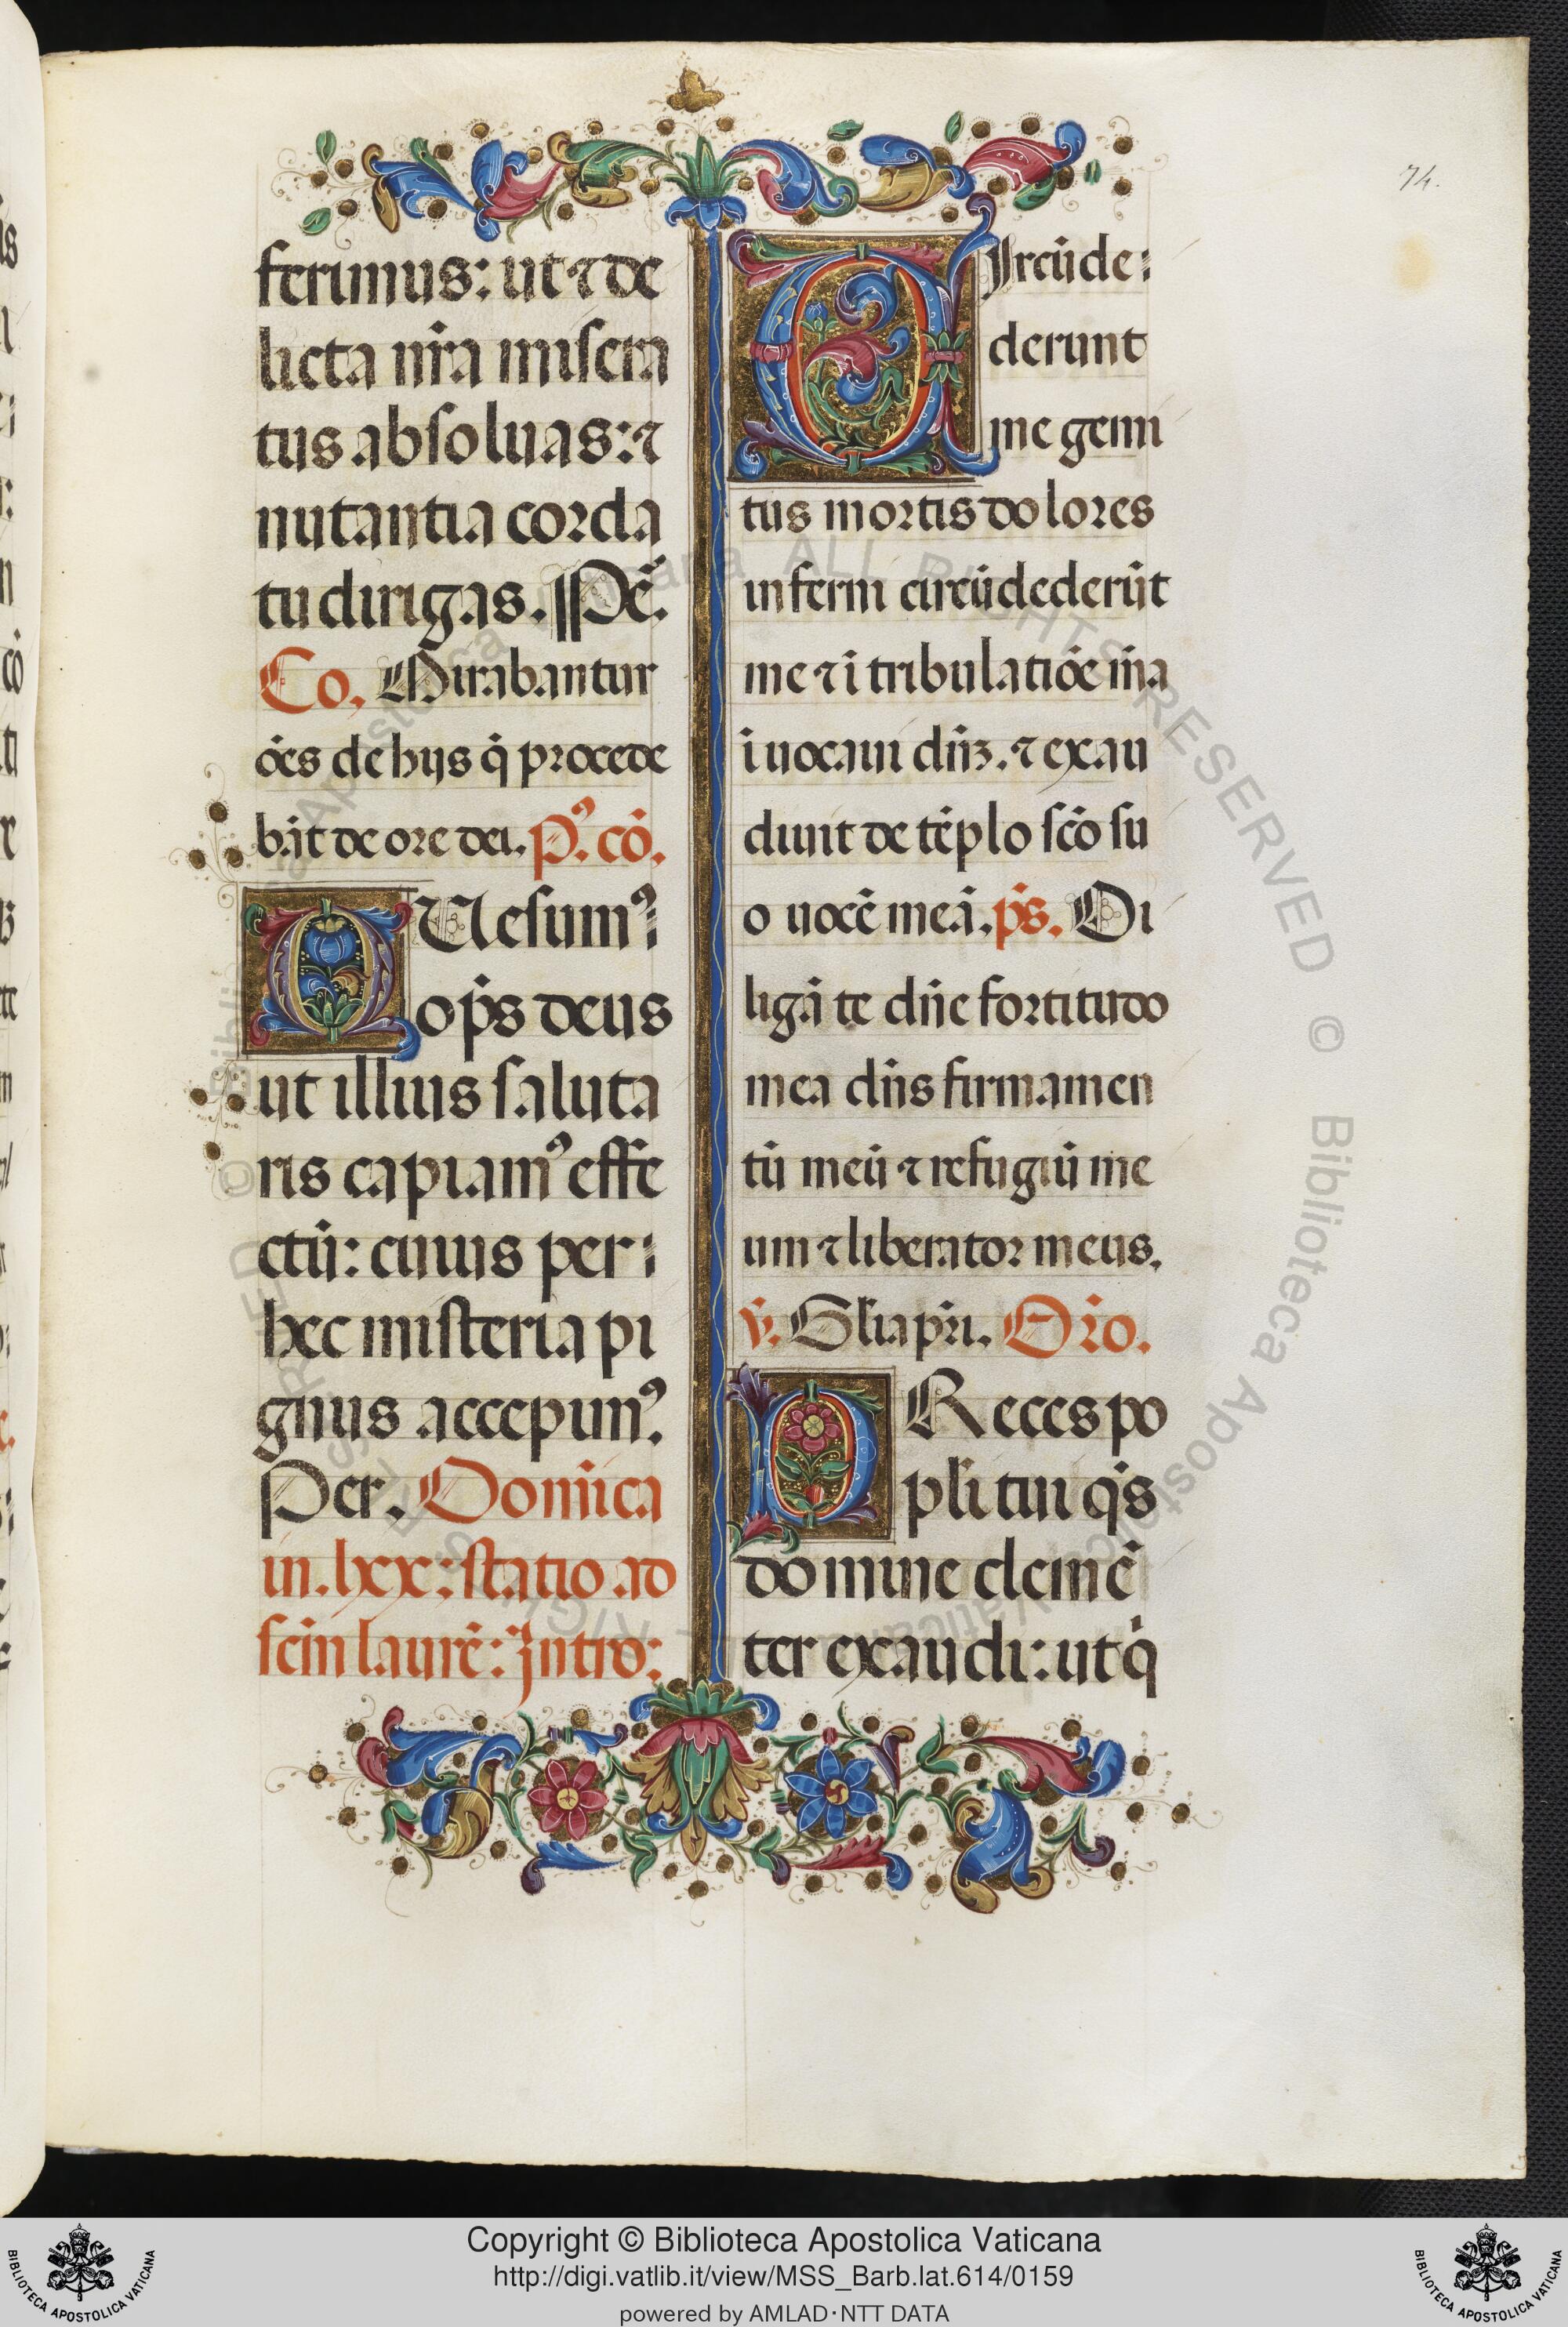 74.
ferimus: ut ⁊ de
licta nr̄a misera
tus absoluas: ⁊
nutantia corda
tu dirigas. Pē.
Co. Mirabantur
ōēs de hijs q̄ procede
bāt de ore dei. Pꝰ. cō.
QUesumꝰ:
op̄s deus
ut illius saluta
ris capiamꝰ effe
ctū: cuius per:
hec misteria pi
gnus accepimꝰ.
Per. Domīica
in .lxx: statio ad
scm̄ laurē: Intro:
CIrcūde:
derunt
me gemi
tus mortis dolores
inferni circūdederūt
me ⁊ ī tribulatiōe m̄a
īuocaui dn̄ꝫ. ⁊ exau
diuit de tēplo sc̄o su
o uocē meā. p̄s. Di
ligā te dn̄e fortitudo
mea dn̄s firmamen
tū meū ⁊ refugiū me
um ⁊ liberator meus.
v̄. Gl̄ia pr̄i. Or̄o.
PReces po
pl̄i tui q̄s
domine clemē
ter exaudi: ut q̄
© Biblioteca Apostolica Vaticana ALL RIGHTS RESERVED
Copyright © Biblioteca Apostolica Vaticana
http://digi.vatlib.it/view/MSS_Barb.lat.614/0159
powered by AMLAD·NTT DATA
BIBLIOTECA APOSTOLICA VATICANA
BIBLIOTECA APOSTOLICA VATICANA